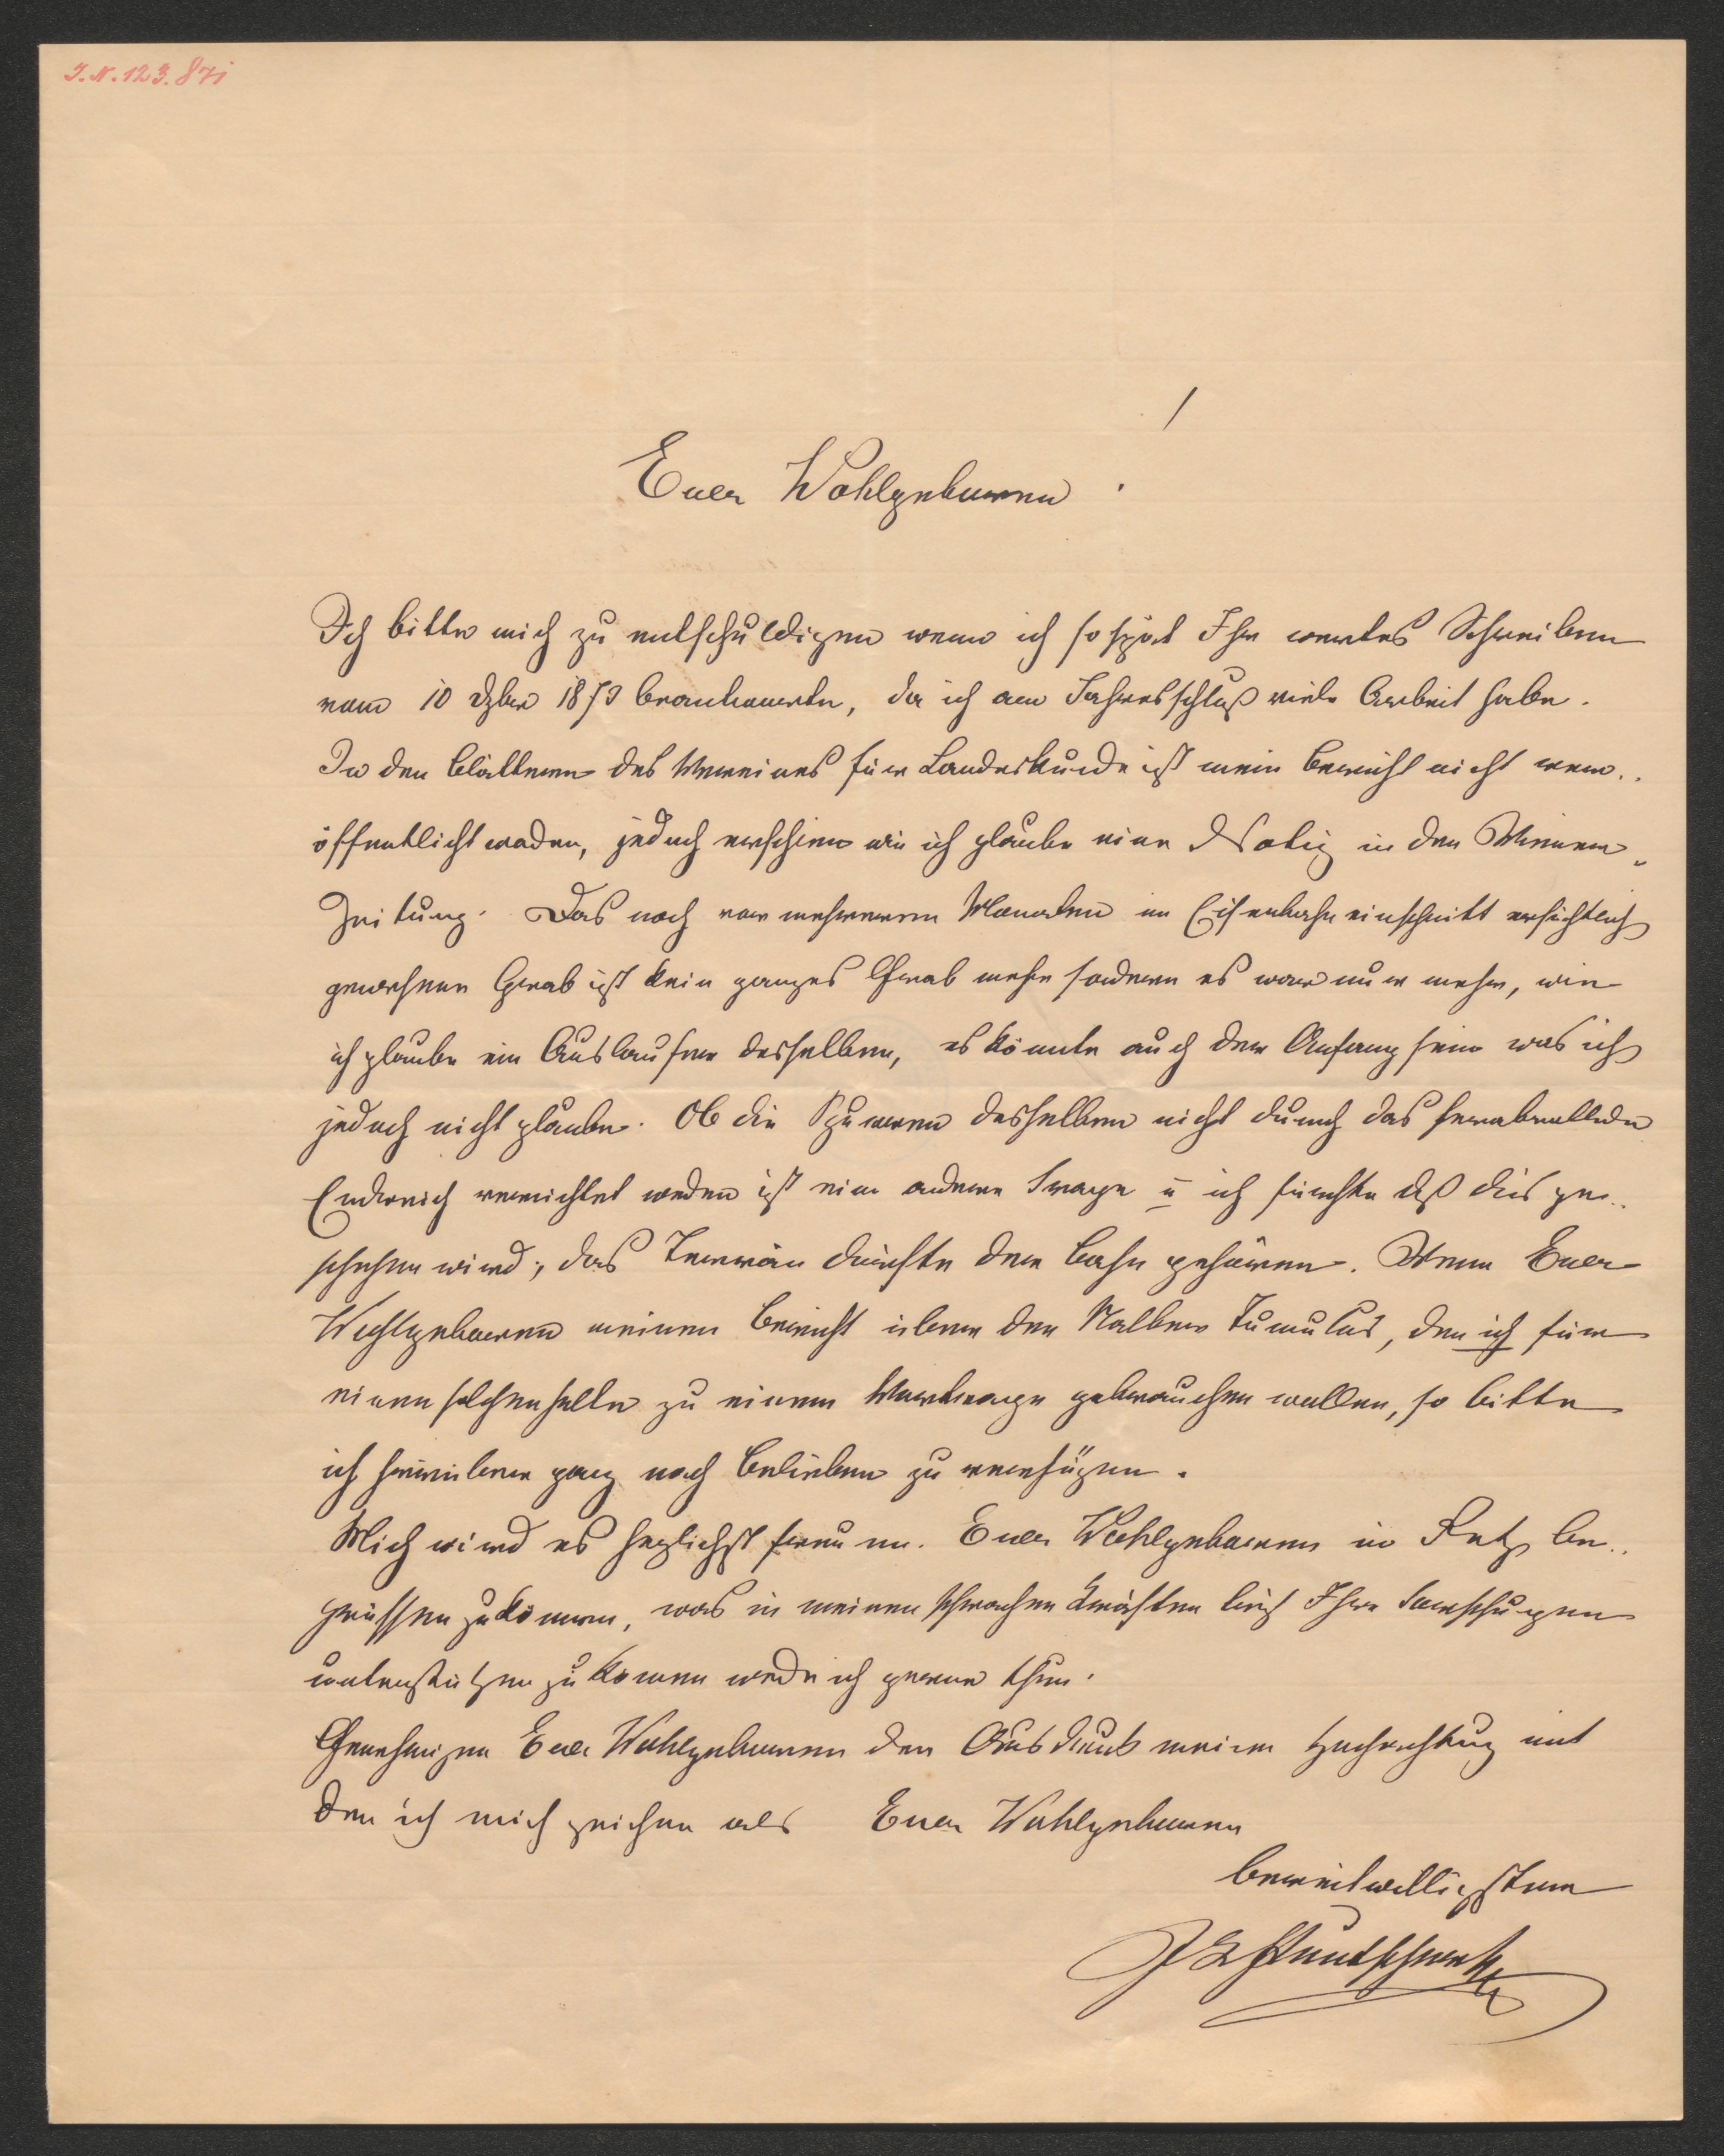 J.N. 123.871
Euer Wohlgeboren!
Ich bitte mich zu entschuldigen wenn ich so spät Ihr wertes Schreiben
vom 10 Dzber 1873 beantworte, da ich am Jahresschluß viele Arbeit habe.
In den Blättern des Vereines für Landeskunde ist mein Bericht nicht ver-
öffentlicht worden, jedoch erschien wie ich glaube eine Notiz in der Wiener-
Zeitung. Das noch vor mehreren Monaten im Eisenbahneinschnitt ersichtlich
gewesene Grab ist kein ganzes Grab mehr sondern es war nur mehr, wie
ich glaube ein Ausläufer desselben, es könnte auch der Anfang sein was ich
jedoch nicht glaube. Ob die Spuren desselben nicht durch das herabrollende
Erdreich vernichtet werden ist eine andere Frage u ich fürchte daß dies ge-
schehen wird; das Terrain dürfte der Bahn gehören. Wenn Euer
Wohlgeboren meinen Bericht über den Kalben Tumulus, den ich für
einen solchen halte zu einem Vortrage gebrauchen wollen, so bitte
ich hierüber ganz nach Belieben zu verfügen.
Mich wird es herzlichst freuen. Euer Wohlgeboren in Retz be-
grüssen zu können, was in meinen schwachen Kräften liegt Ihre Forschungen
unterstützen zu können werde ich gerne thun.
Genehmigen Euer Wohlgeboren den Ausdruck meiner Hochachtung mit
der ich mich zeichne als Euer Wohlgeboren
bereitwilligster